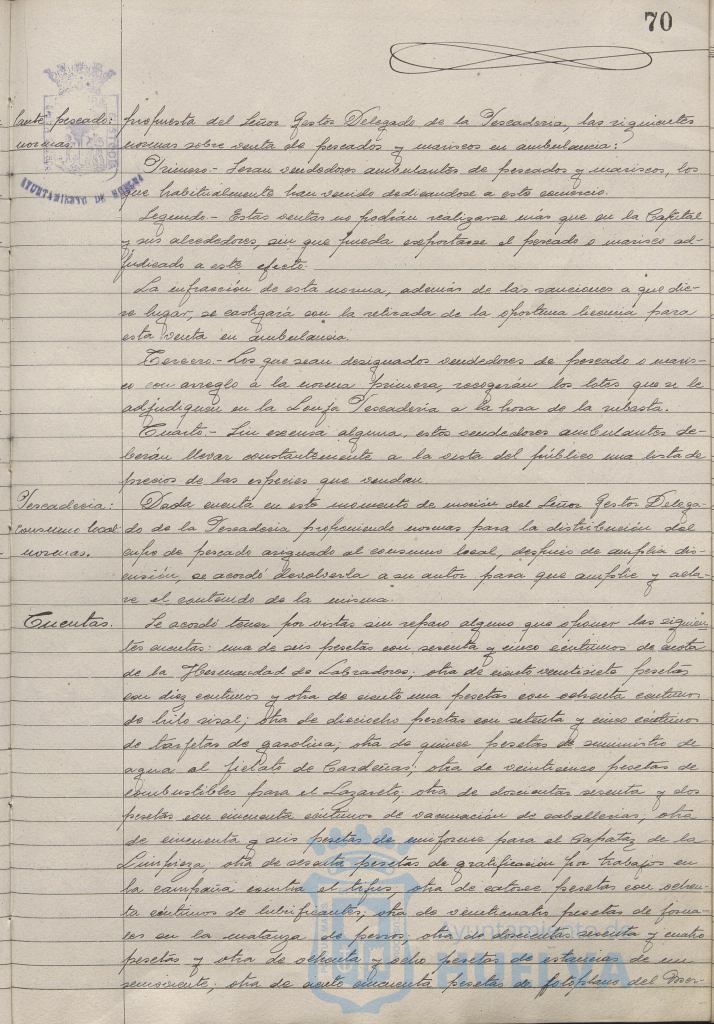 70
bante pescado: propuesta del Señor Gestor Delegado de la Pescaderia, las siguientes
normas. normas sobre venta de pescados y mariscos en ambulancia:
AYUNTAMIENTO DE HUELVA
Primero.- Seran vendedores ambulantes de pescados y mariscos, los
que habitualmente han venido dedicandose a este comercio.
Segundo.- Estas ventas no podrán realizarse más que en la Capital
y sus alrededores, sin que pueda exportarse el pescado o marisco ad-
judicado a este efecto.
La infracción de esta norma, además de las sanciones a que die-
re lugar, se castigará con la retirada de la oportuna licencia para
esta venta en ambulancia.
Tercero.- Los que sean designados vendedores de pescado o maris-
co con arreglo a la norma primera, recogerán los lotes que se le
adjudiquen en la Lonja Pescadería a la hora de la subasta.
Cuarto.- Sin excusa alguna, estos vendedores ambulantes de-
berán llevar constantemente a la vista del público una lista de
precios de las especies que vendan.
Pescaderia: Dada cuenta en este momento de moción del Señor Gestor Delega-
consumo local- do de la Pescaderia proponiendo normas para la distribución del
normas. cupo de pescado asignado al consumo local, después de amplia dis-
cusión, se acordó devolverla a su autor para que amplie y acla-
re el contenido de la misma.
Cuentas. Se acordó tener por vistas sin reparo alguno que oponer las siguien-
tes cuentas: una de seis pesetas con sesenta y cinco céntimos de cuota
de la Hermandad de Labradores; otra de ciento veintisiete pesetas
con diez centimos y otra de ciento una pesetas con ochenta centimos
de hilo sisal; otra de dieciocho pesetas con setenta y cinco céntimos
de tarjetas de gasolina; otra de quince pesetas de suministro de
agua al fielato de Cardeñas; otra de veinticinco pesetas de
combustibles para el Lazareto; otra de doscientas sesenta y dos
pesetas con cincuenta céntimos de vacunación de caballerias; otra
de cincuenta y seis pesetas de uniforme para el Capataz de la
Limpieza; otra de sesenta pesetas de gratificación por trabajos en
la campaña contra el tifus, otra de catorce pesetas con ochen-
ta céntimos de lubrificantes; otra de veinticuatro pesetas de jorna-
les en la matanza de perros; otra de doscientas sesenta y cuatro
pesetas y otra de ochenta y ocho pesetas de estancias de un
semoviente; otra de ciento cincuenta pesetas de fotoplano del Mer-
Ayuntamiento de
HUELVA